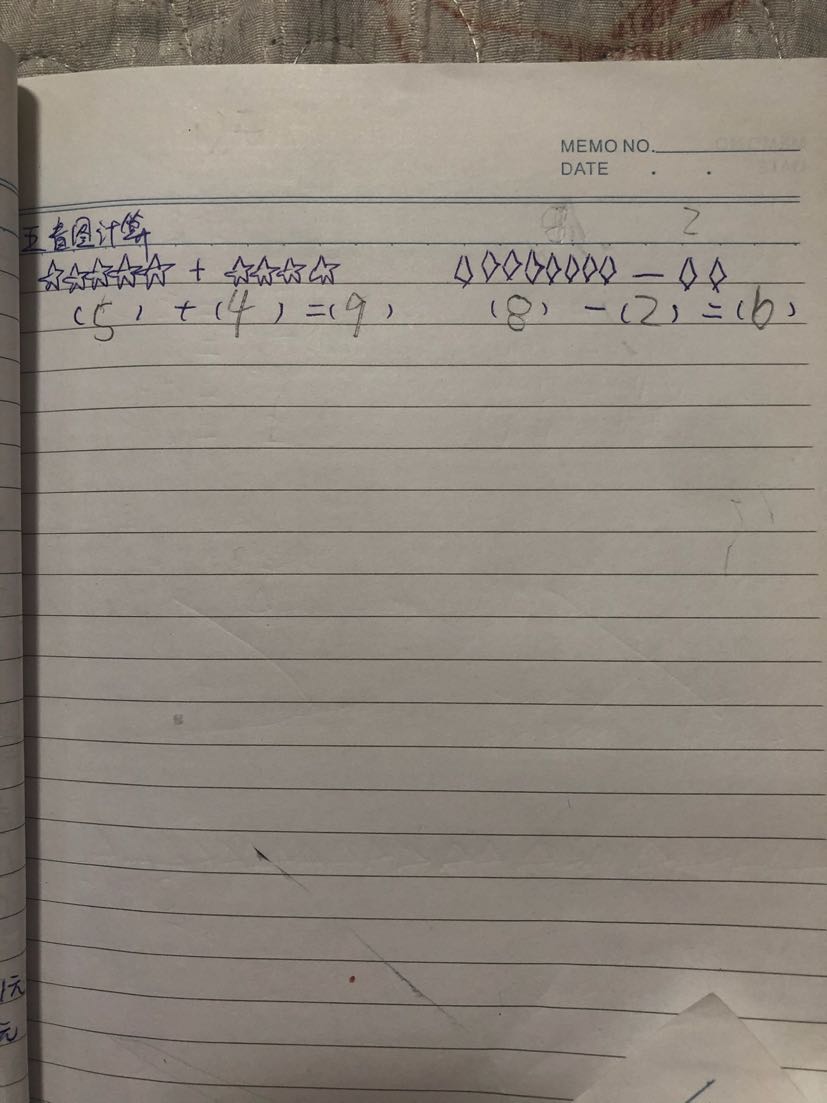 MEMO NO.
DATE . .
2
五看图计算
☆☆☆☆☆ + ☆☆☆☆ ◇◇◇◇◇◇◇ — ◇◇
(5) + (4) = (9) (8) - (2) = (6)
1元
元